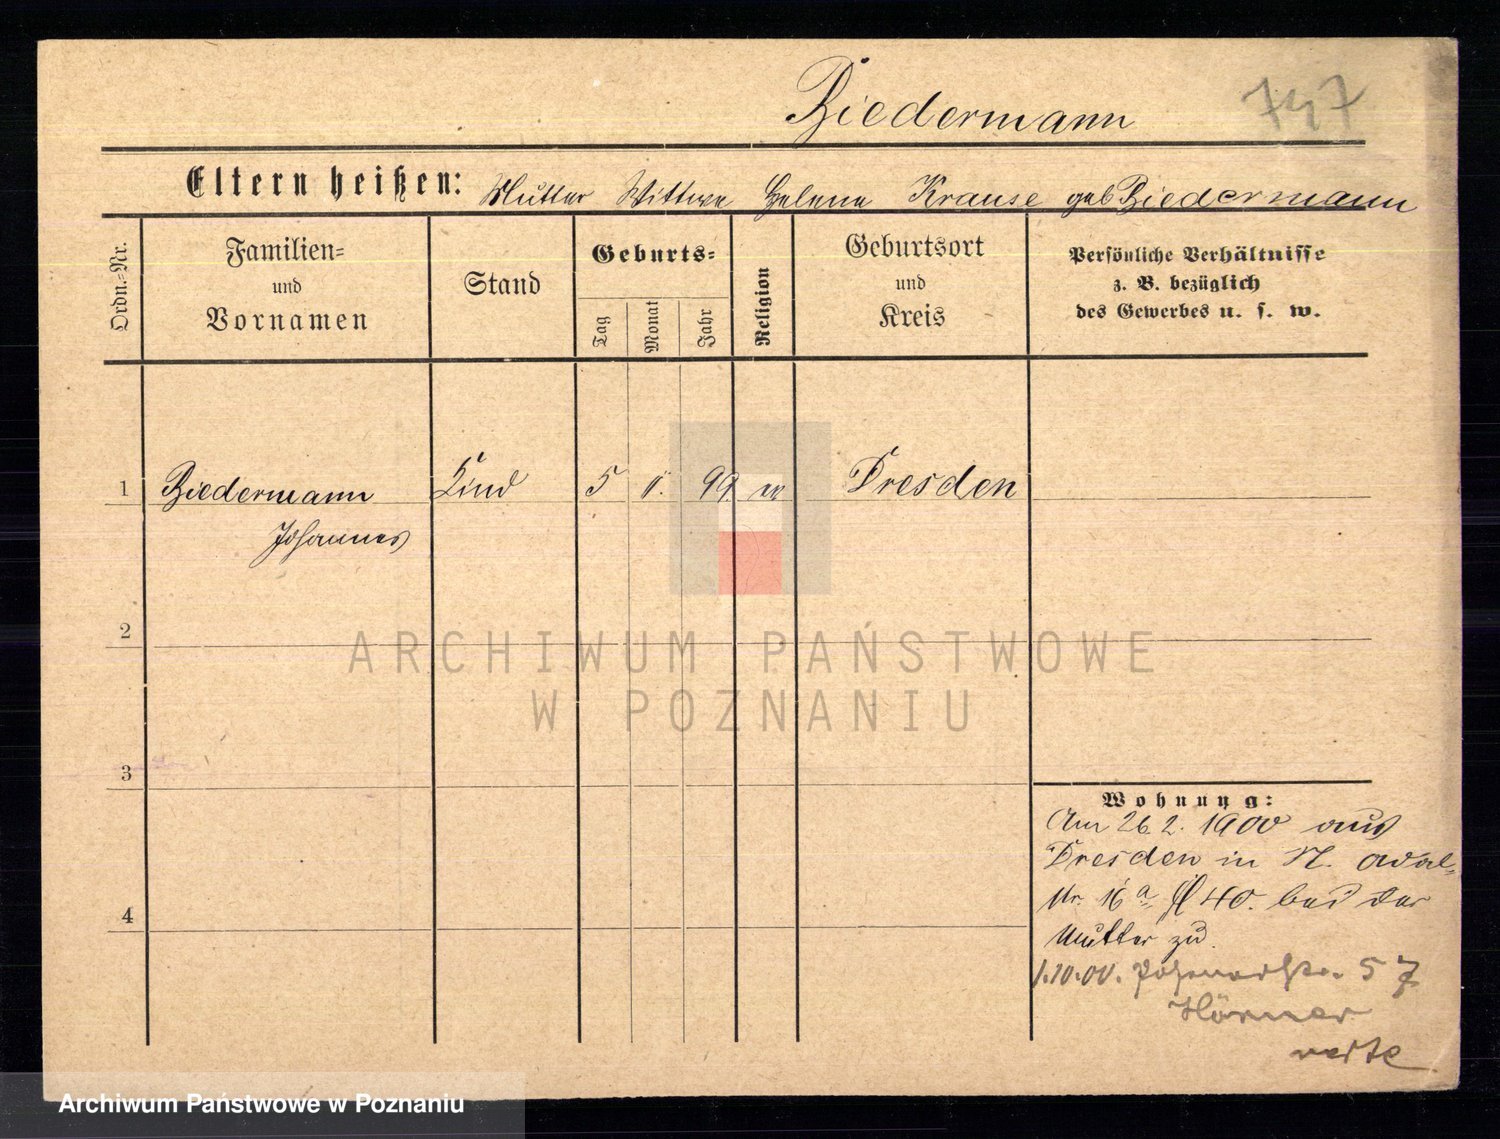 Biedermann 747
Eltern heißen: Mutter Wittwe Helene Krause geb Biedermann
Ordn.-Nr.
Familien-
und
Vornamen
Stand
Geburts-
Tag
Monat
Jahr
Religion
Geburtsort
und
Kreis
Persönliche Verhältnisse
z. B. bezüglich
des Gewerbes u. s. w.
1 Biedermann Kind 5 99. Dresden
Johannes
2
ARCHIWUM PAŃSTWOWE
W POZNANIU
3
4
Wohnung:
Am 26 2. 1900 aus
Dresden in
Nr. 16 a 40. bei der
Mutter zu.
1.10.00. Posenerstr. 57
verte
Archiwum Państwowe w Poznaniu